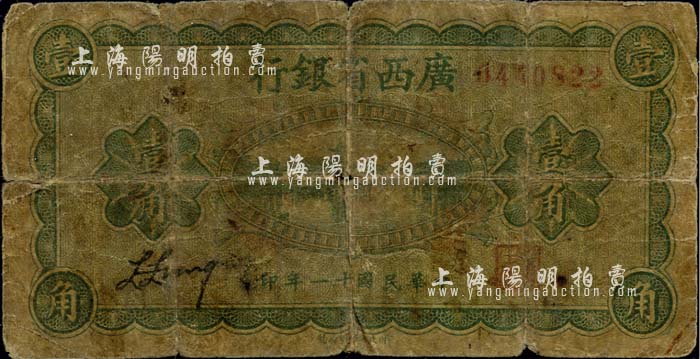 壹 壹
行銀省西廣
壹角 壹角
印年一十國民華
角 角
上海陽明拍賣
www.yangmingauction.com
上海陽明拍賣
www.yangmingauction.com
上海陽明拍賣
www.yangmingauction.com